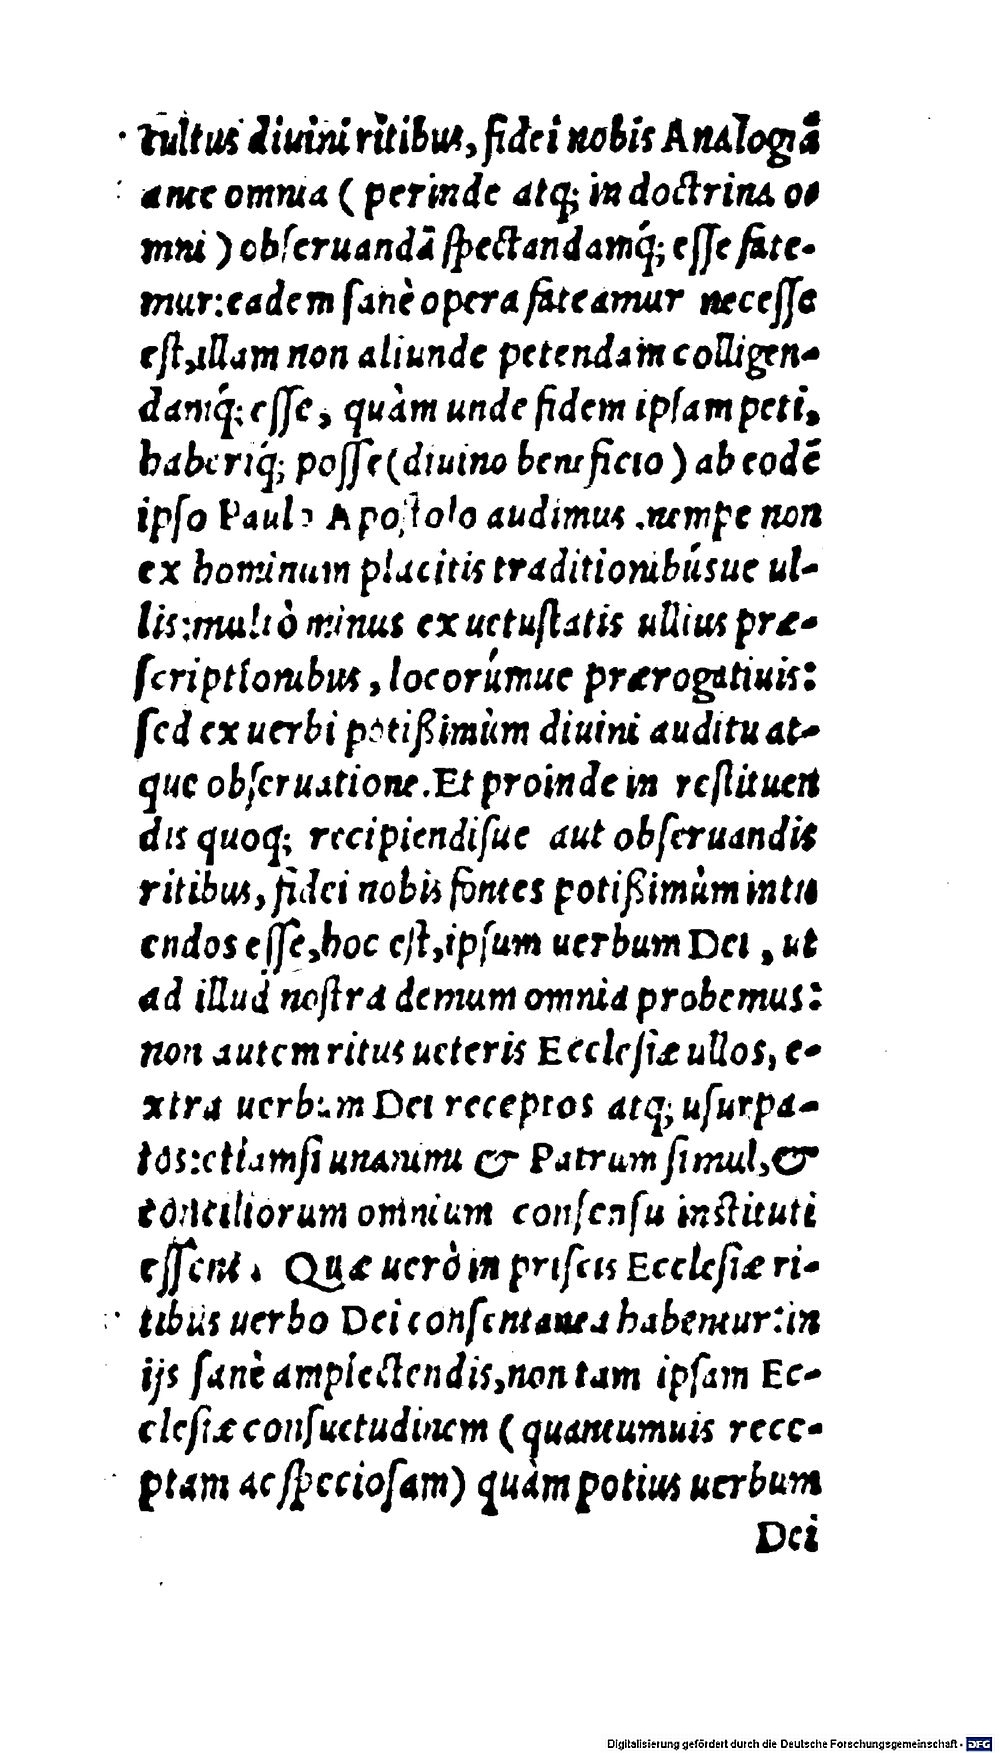 cultus diuini ritibus, fidei nobis Analogiã
ante omnia ( perinde atq; in doctrina o-
mni ) obſeruandã ſpectandamq́; eſſe fate-
mur: eadem ſanè opera fateamur neceſſe
eſt, illam non aliunde petendam colligen-
damq́; eſſe, quàm unde fidem ipſam peti,
haberiq́; poſſe (diuino beneficio ) ab eodẽ
ipſo Paulo Apoſtolo audimus . nempe non
ex hominum placitis traditionibúsue ul-
lis: multò minus ex uetuſtatis ullius præ-
ſcriptionibus, locorúmue prærogatiuis:
ſed ex uerbi potißimùm diuini auditu at-
que obſeruatione. Et proinde in reſtituen
dis quoq; recipiendiſue aut obſeruandis
ritibus, fidei nobis fontes potißimùm intu
endos eſſe, hoc eſt, ipſum uerbum Dei , ut
ad illud noſtra demum omnia probemus:
non autem ritus ueteris Eccleſiæ ullos, e-
xtra uerbum Dei receptos atq; uſurpa-
tos: etiamſi unanimi & Patrum ſimul, &
conciliorum omnium conſenſu inſtituti
eſſent. Quæ uerò in priſcis Eccleſiæ ri-
tibus uerbo Dei conſentanea habentur: in
ijs ſanè amplectendis, non tam ipſam Ec-
cleſiæ conſuetudinem ( quantumuis rece-
ptam ac ſpecioſam) quàm potius uerbum
Dei
Digitalisierung gefördert durch die Deutsche Forschungsgemeinschaft - DFG